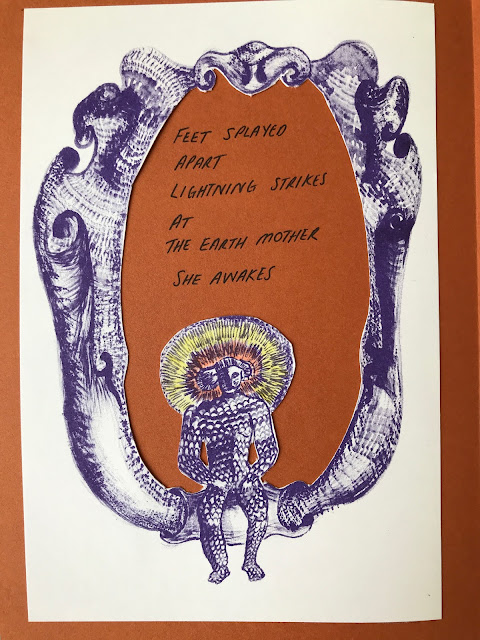 FEET SPLAYED
APART
LIGHTNING STRIKES
AT
THE EARTH MOTHER
SHE AWAKES